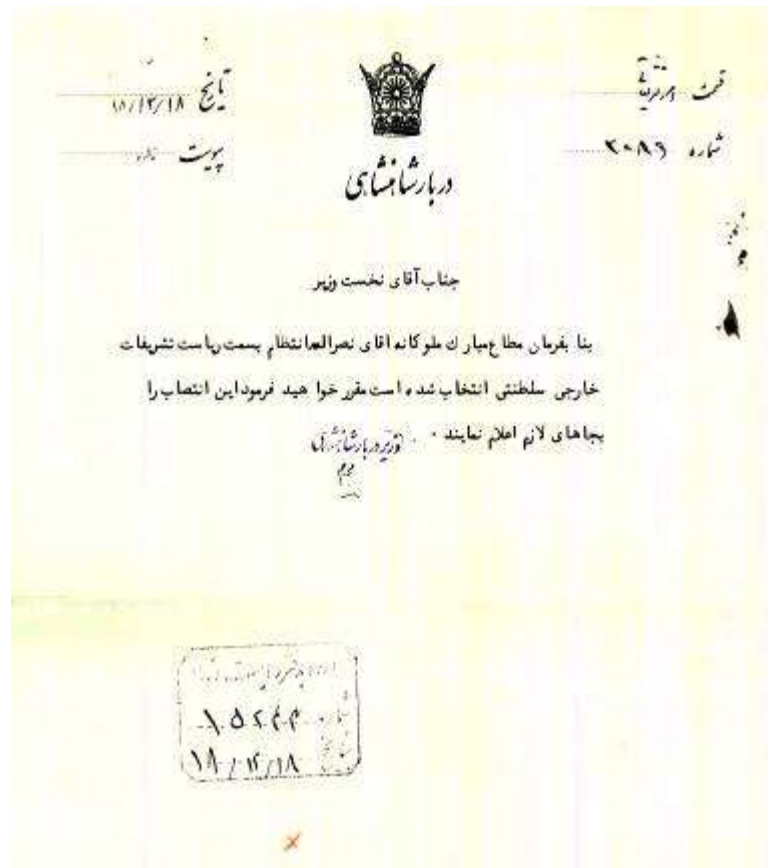 تاریخ ۱۸/۱۲/۱۸
پیوست
دربار شاهنشاهی
قسمت
شماره ۲۰۸۶
جناب آقای نخست وزیر
بنا بفرمان مطاع مبارك ملوکانه آقای نصراله انتظام بسمت ریاست تشریفات
خارجی سلطنتی انتخاب شده است مقرر خواهید فرمود این انتصاب را
بجاهای لازم اعلام نمایند ۰
وزیر دربار شاهنشاهی
شماره ۱۵۲۴۴
تاریخ ۱۸/۱۲/۱۸